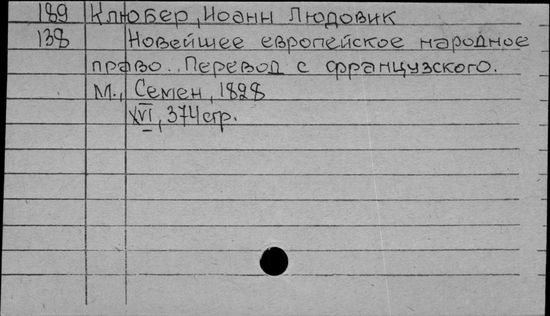 189 Клюбер, Иоанн Людовик
138 Новейшее европейское народное
право.. Перевод с французского.
М., Семен, 1828
XVI, 374 стр.